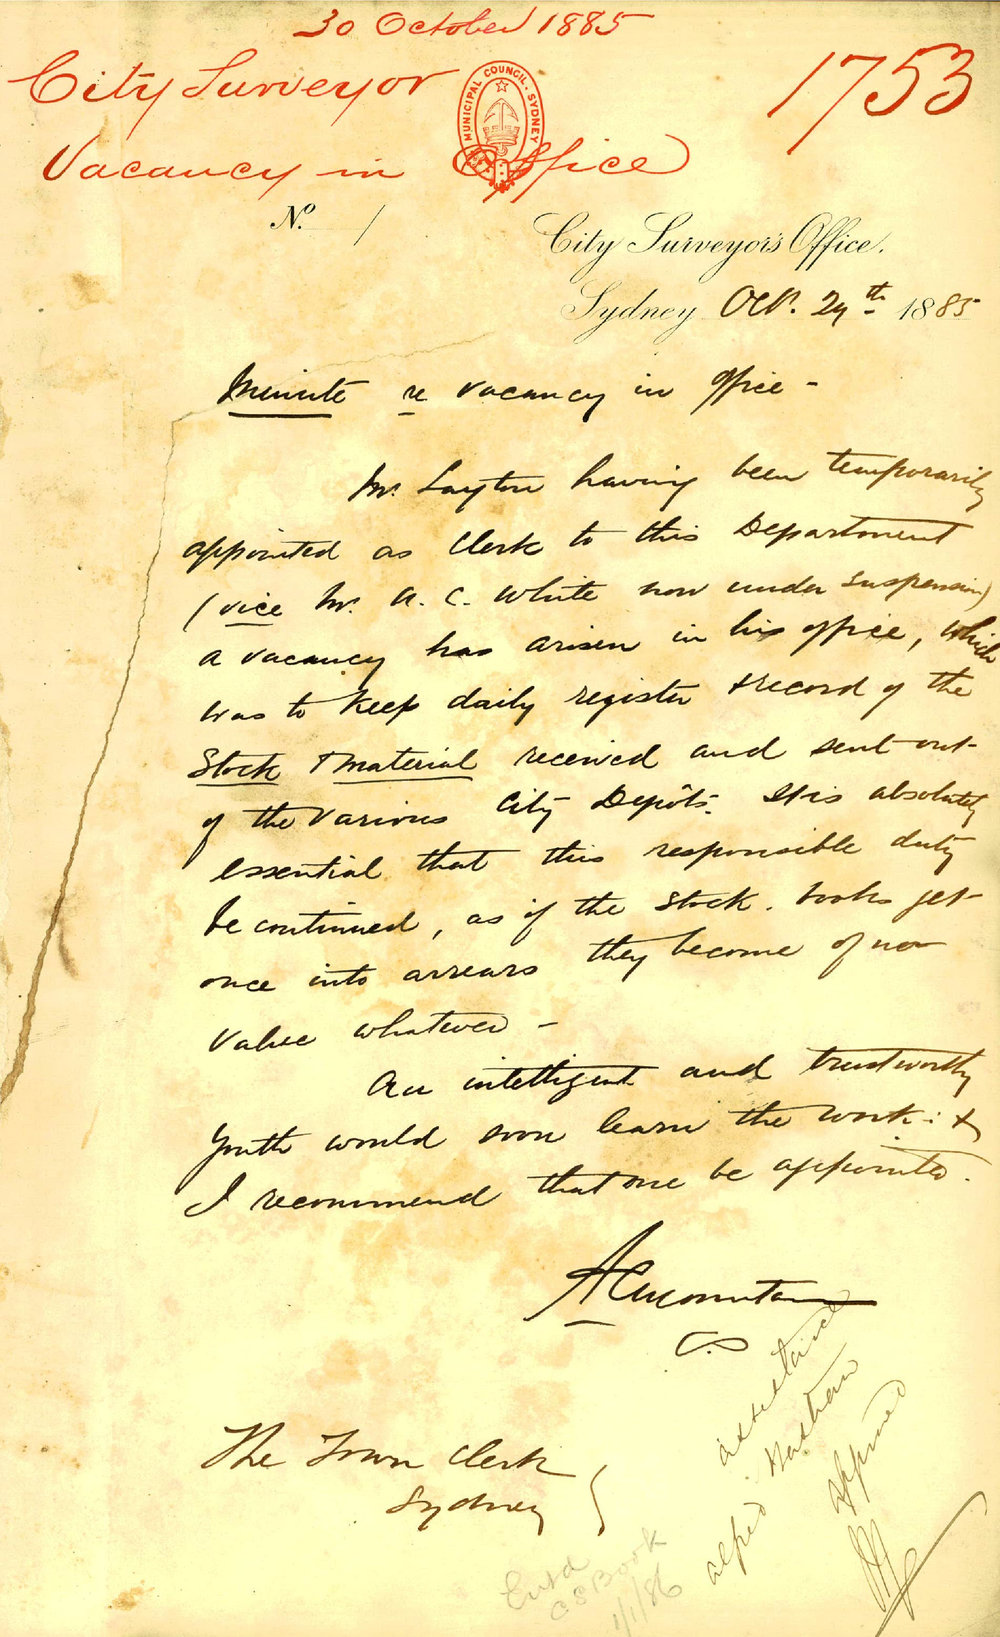 30 October 1885
City Surveyor
1753
MUNICIPAL COUNCIL. SYDNEY
Vacancy in Office
No. 1
City Surveyor's Office.
Sydney Oct. 29th 1885
Minute re vacancy in office -
Mr. Layton having been temporarily
appointed as Clerk to this Department
(vice Mr. A. C. White now under suspension)
a vacancy has arisen in his office, which
was to keep daily register & record of the
Stock & Material received and sent out
of the various City Depôts. It is absolutely
essential that this responsible duty
be continued, as if the Stock books get
once into arrears they become of no
value whatever -
An intelligent and trustworthy
youth would soon learn the work: &
I recommend that one be appointed.
C.S
The Town Clerk
Sydney
assistance
Alfred
approved
Entd
C S Book
1/1/86